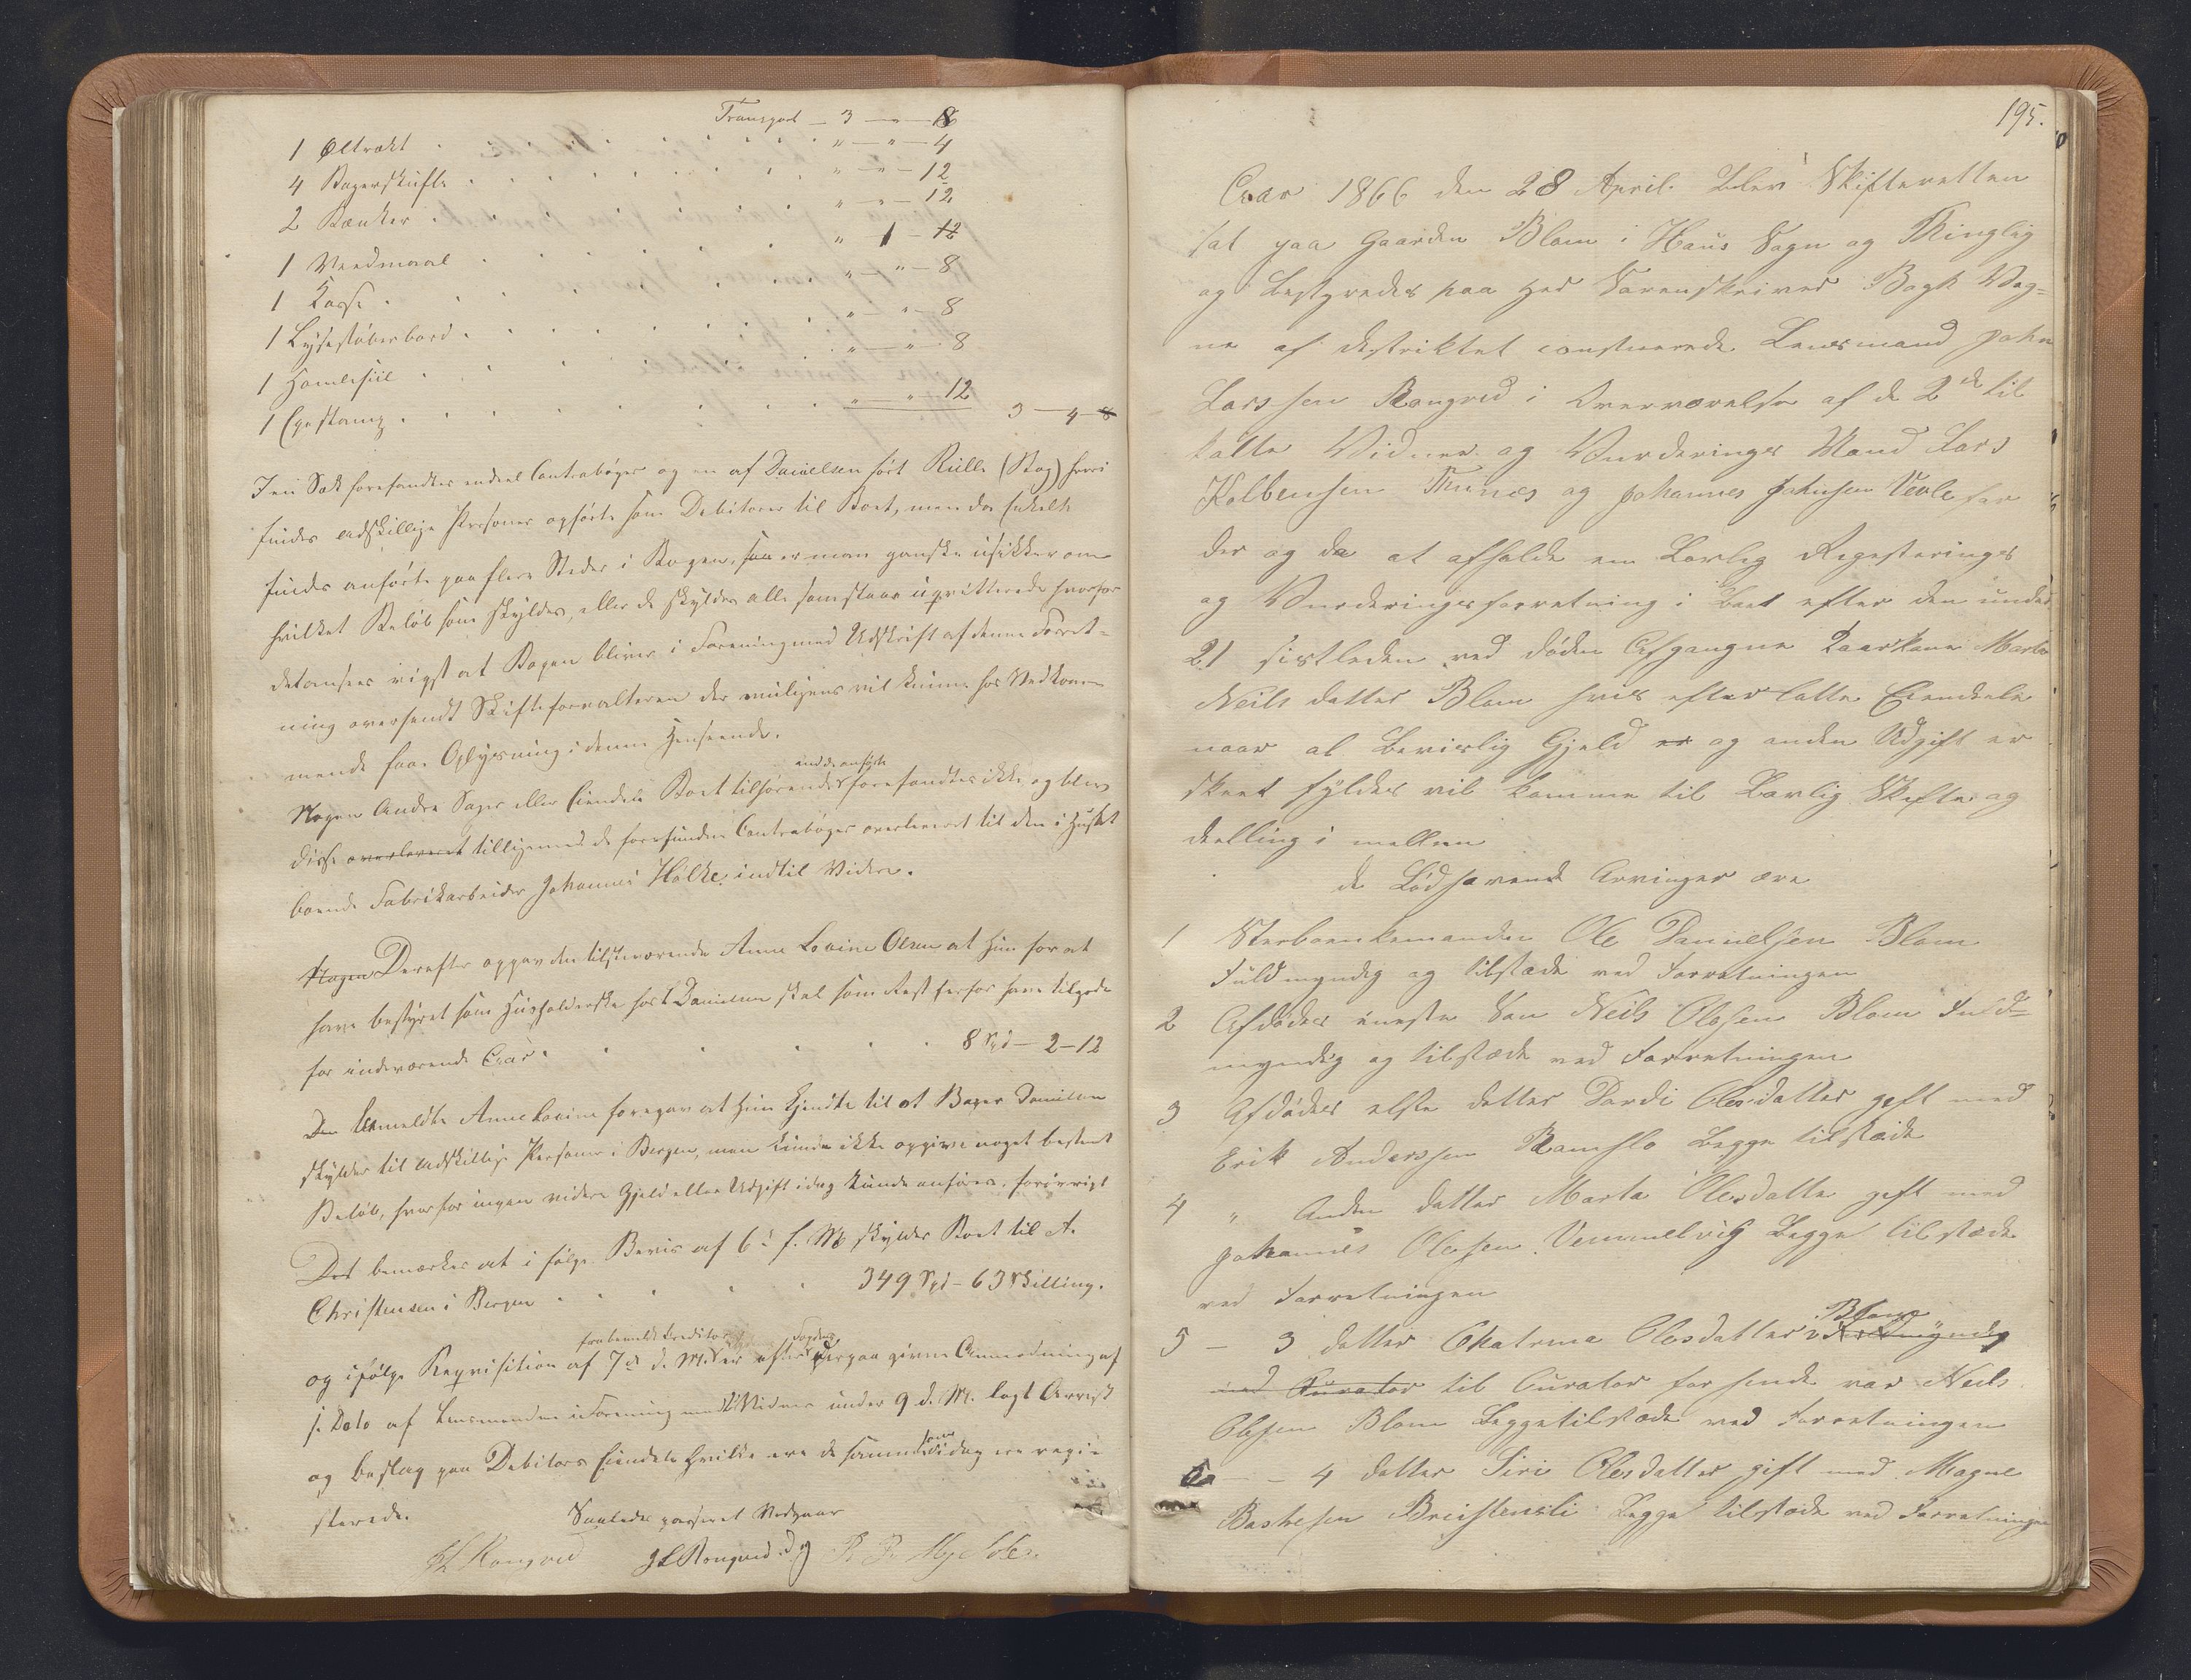 Transport - 3 - " - 8
1 Øltrakt . . . " - " - 4
4 Bagerskufle . . . " - " - 12
2 Bænker . . . " - " - 12
1 Vendmaal . . . " 1 - 12
1 Kasse . . . " - " - 8
1 Lysestøberbord . . . " - " - 8
1 Hamlesiil . . . " - " - 8
1 Exestamp . . . " - " - 12 3 - 4 - 8
I en Sæk forefandtes endeel Contrabøger og en af Danielsen ført Rulle (Bog) hvori
findes adskillige Personer opførte som Debitorer til Boet, men da Enkelte
findes anførte paa flere Steder i Bogen, saa er man ganske usikker om
hvilket Beløb som skyldes, eller de skyldes alle som staar uqvitterede hvorfor
det ansees rigtigst at Bogen bliver i Forening med Udskrift af denne Forret-
ning oversendt Skifteforvalteren der muligens vil kunne hos Vedkom-
mende faae Oplysning i denne Henseende.
Nogen Andre Sager eller Eiendele Boet tilhørende end de anførte forefandtes ikke og blev
disse overleveret tilligemed de forefundne Contrabøger overleveret til den i Huset
boende Fabrikarbeider Johannes Holke indtil Videre.
Nogen Derefter opgav den tilstæværende Anne Lovine Olsen at hun for at
have bestyret som Huusholderske hos Danielsen skal som Rest herfor have tilgode
for indeværende Aar . . . 8 Spd - 2 - 12
Den bemeldte Anne Lovine foregav at hun kjendte til at Bager Danielsen
skylder til adskillige Personer i Bergen, men kunde ikke opgive noget bestemt
Beløb, hvorfor ingen videre Gjeld eller Udgift idag kunde anføres. forøvrigt
Det bemærkes at i følge Bevis af 6te f. M skylder Boet til A.
Christensen i Bergen . . . 349 Spd - 63 Skilling.
og ifølge Reqvisition af 7de d. M. fra bemeldte Creditor er efter Fogdens derpaa givne Anmodning af
s. Dato af Lensmanden i Forening med 2 Vidner under 9 d. M. lagt Arrest
og beslag paa Debitors Eiendele hvilke ere de samme som idag ere regi-
sterede.
Saaledes passeret Vedgaar
JL Rongved JL Rongved. d g R. R. Mjelde.
195.
Aar 1866 den 28 April. blev Skifteretten
sat paa Gaarden Blom i Haus Sogn og Thinglag
og bestyredes paa Hrr Sorenskriver Bagh Veg=
ne af destriktet constuerede Lensmand John
Larssen Rongved i Overværelse af de 2de til
kalte Vidner og Vurderings Mænd Lars
Kolbensen Tunæs og Johannes Johnsen Veole for
der og da at afholde en Lovlig Regesterings
og Vurderingsforretning i Boet efter den under
21 sistleden ved døden Afgangne Kaarkone Marta
Neils datter Blom hvis efter latte Eiendele
naar al Bevislig Gjeld er og anden Udgift er
skeet fyldes vil komme til Lovlig Skifte og
deelling i mellem
de Lødhavende Arvinger ere
1 Sterboenkemanden Ole Danielsen Blom
fuld myndig og tilstæde ved Forretningen
2 Afdødes eneste Søn Neils Olesen Blom Fuld=
myndig og tilstæde ved Forretningen
3 Afdødes elste datter Dordi Olesdatter gift med
Erik Anderssen Ramslo begge tilstæde
4 " Anden datter Marta Olesdatter gift med
Johannes Olessen Vemmelvig begge tilstæde
ved Forretningen
5 - 3 datter Chatrina Olesdatter Blom Fuldmyndig
med Curator til Curator for hende var Neils
Olesen Blom Beggetilstæde ved Forretningen
6 - 4 datter Siri Olesdatter gift med Magne
Bastesen Breistenesli begge tilstæde ved Forretningen